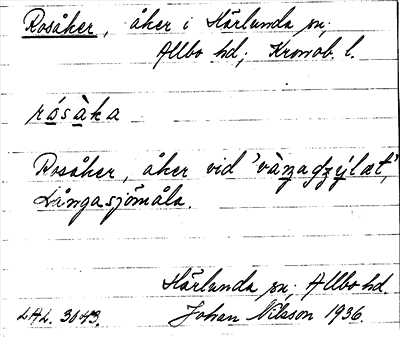 Rosåker, åker i Härlunda sn;
Allbo hd; Kronob. l.
rósàka
Rosåker, åker vid 'vàŋagʒýlæt',
Långasjömåla.
Härlunda sn; Allbo hd.
LAL. 3043. Johan Nilsson 1936.